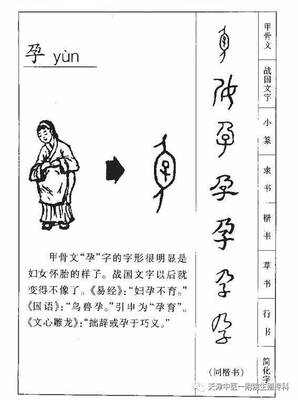 孕 yùn
甲骨文“孕”字的字形很明显是
妇女怀胎的样子。战国文字以后就
变得不像了。《易经》：“妇孕不育。”
《国语》：“鸟兽孕。”引申为“孕育”。
《文心雕龙》：“拙辞或孕于巧义。”
甲骨文
战国文字
小篆
隶书
楷书
草书
行书
简化字
孕
孕
孕
孕
孕
(同楷书)
天津中医一附院生殖骨科